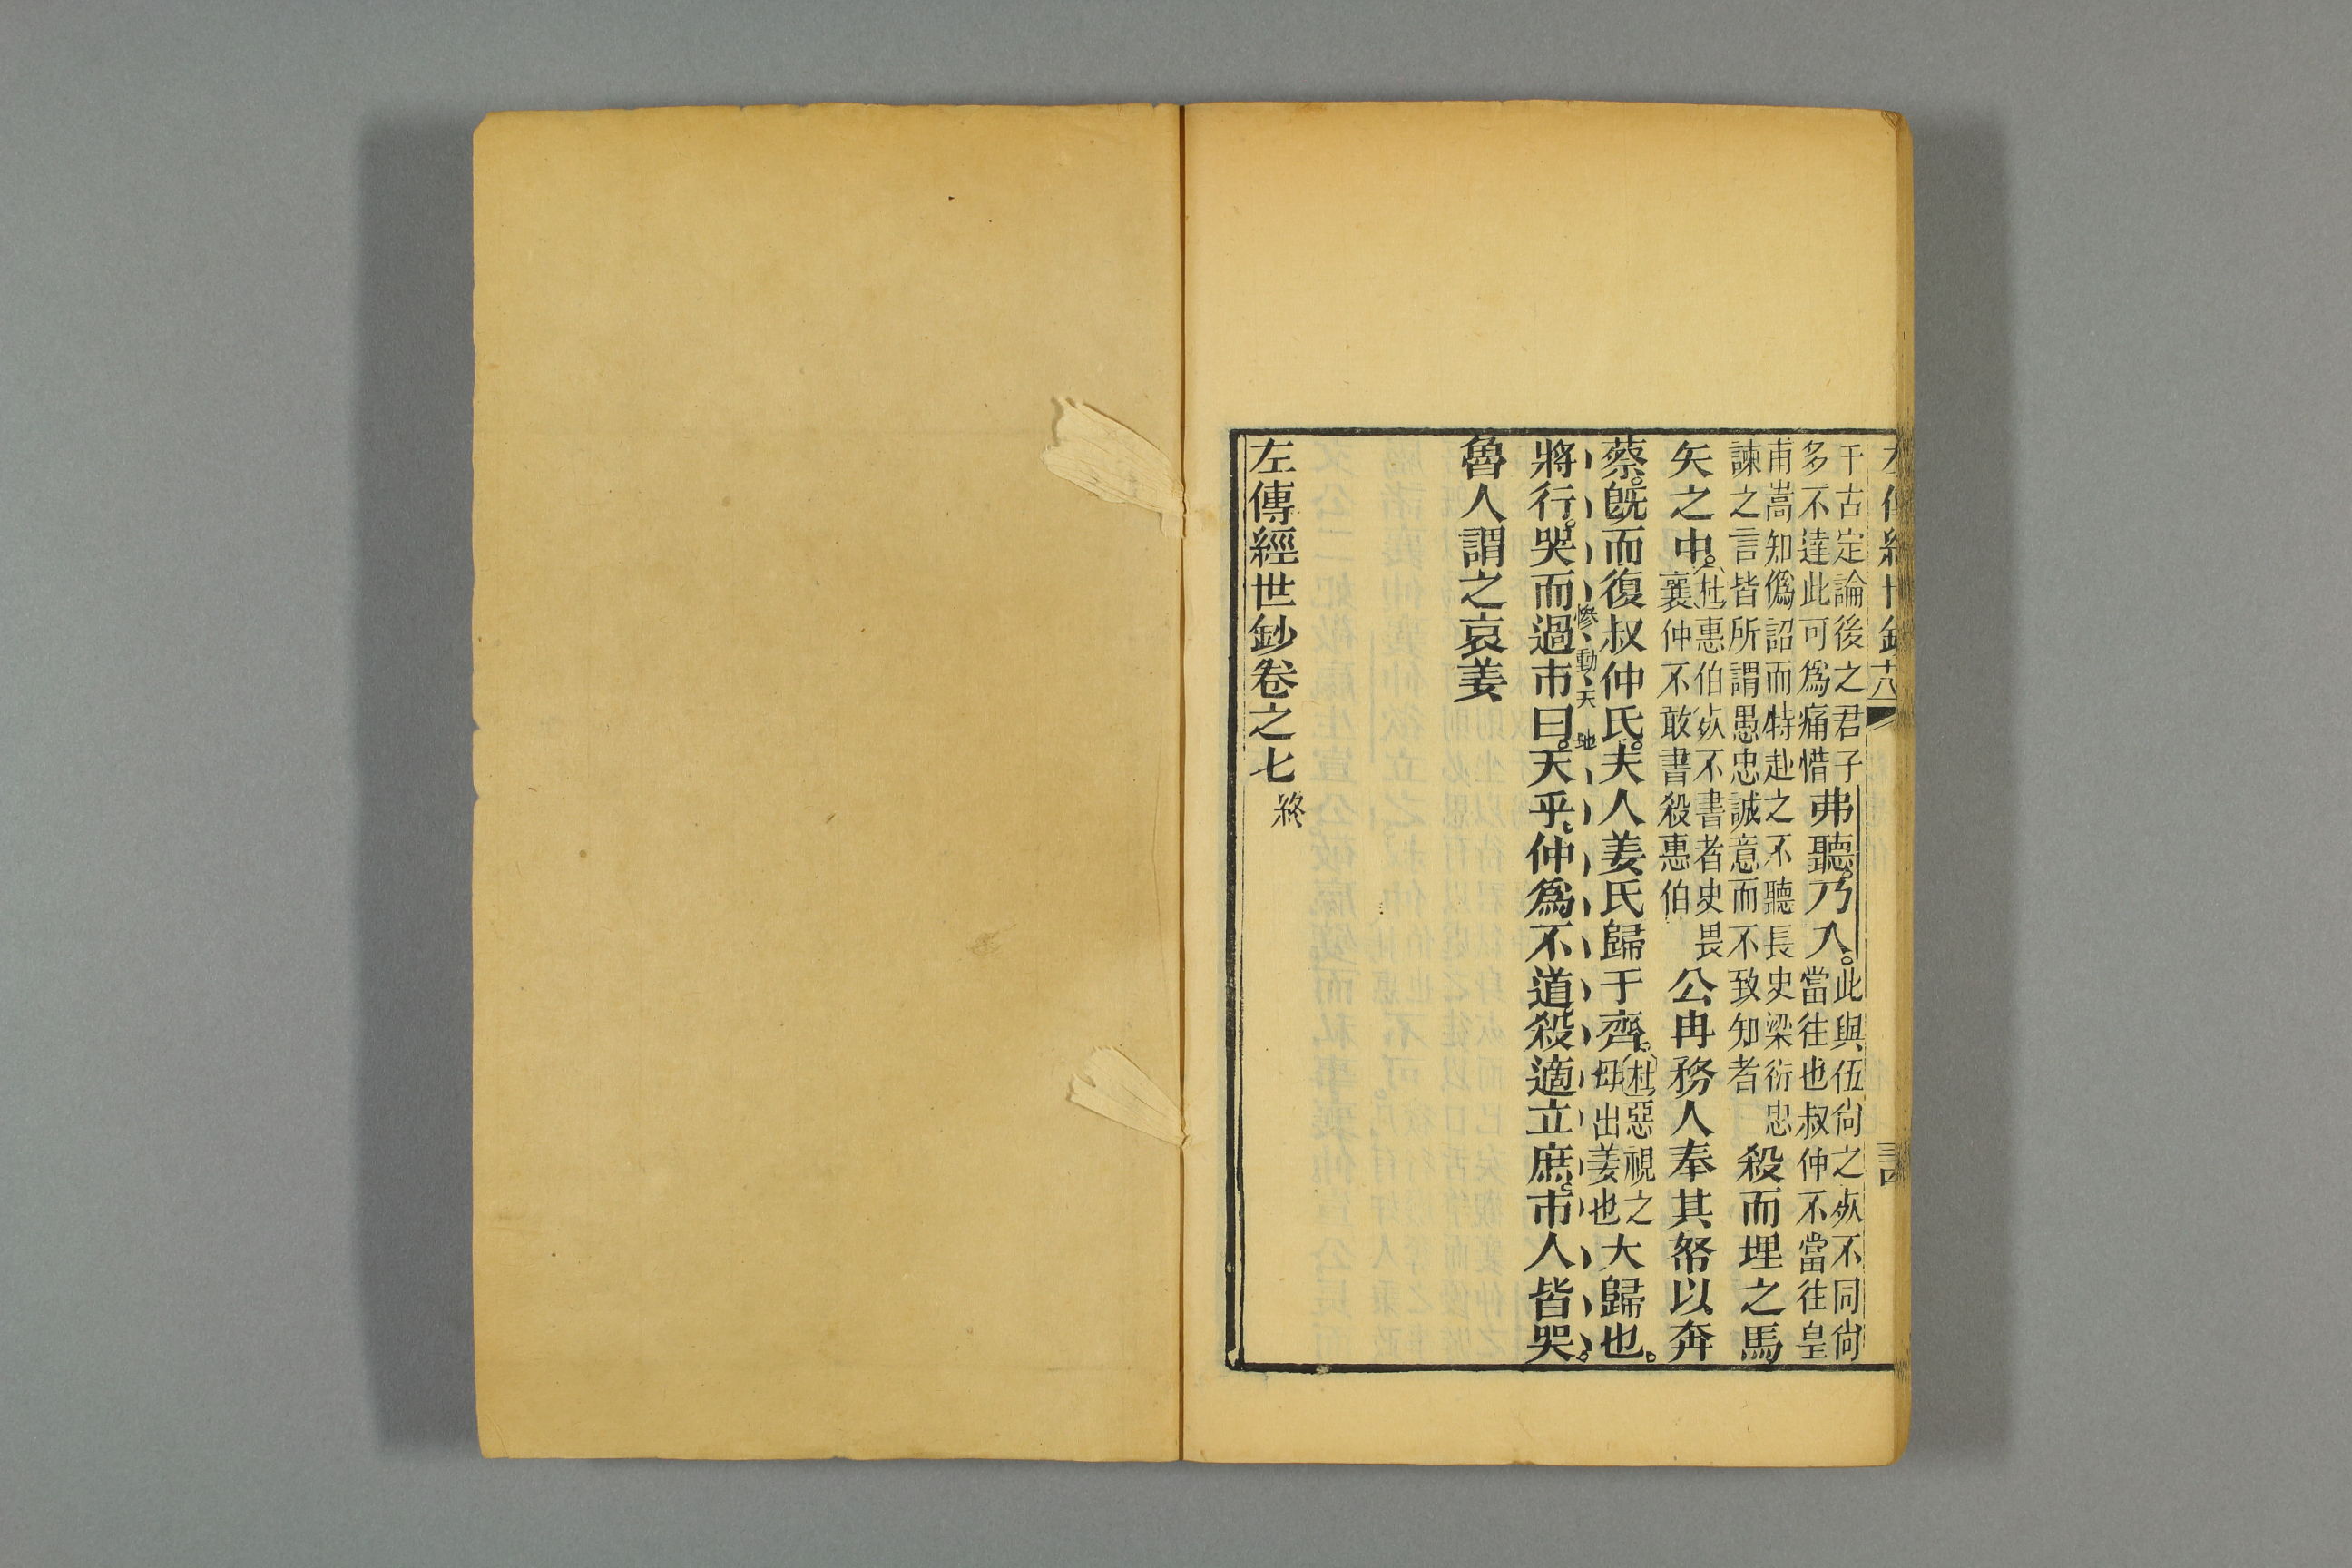 千古定論後之君子
多不達此可為痛惜
弗聽乃入。
此與伍尚之㱾不同尚
當往也叔仲不當往皇
甫嵩知僞詔而特赴之不聽長史梁衍忠
諫之言皆所謂愚忠誠意而不致知者
殺而埋之馬
矢之中。
〔杜〕惠伯㱾不書者史畏
襄仲不敢書殺惠伯
公冉務人奉其帑以奔
蔡。旣而復叔仲氏。夫人姜氏歸于齊。
〔杜〕惡視之
母出姜也
大歸也。
慘動天地
將行。哭而過市曰。天乎。仲爲不道殺適立庶。市人皆哭。
魯人謂之哀姜
左傳經世鈔卷之七 終